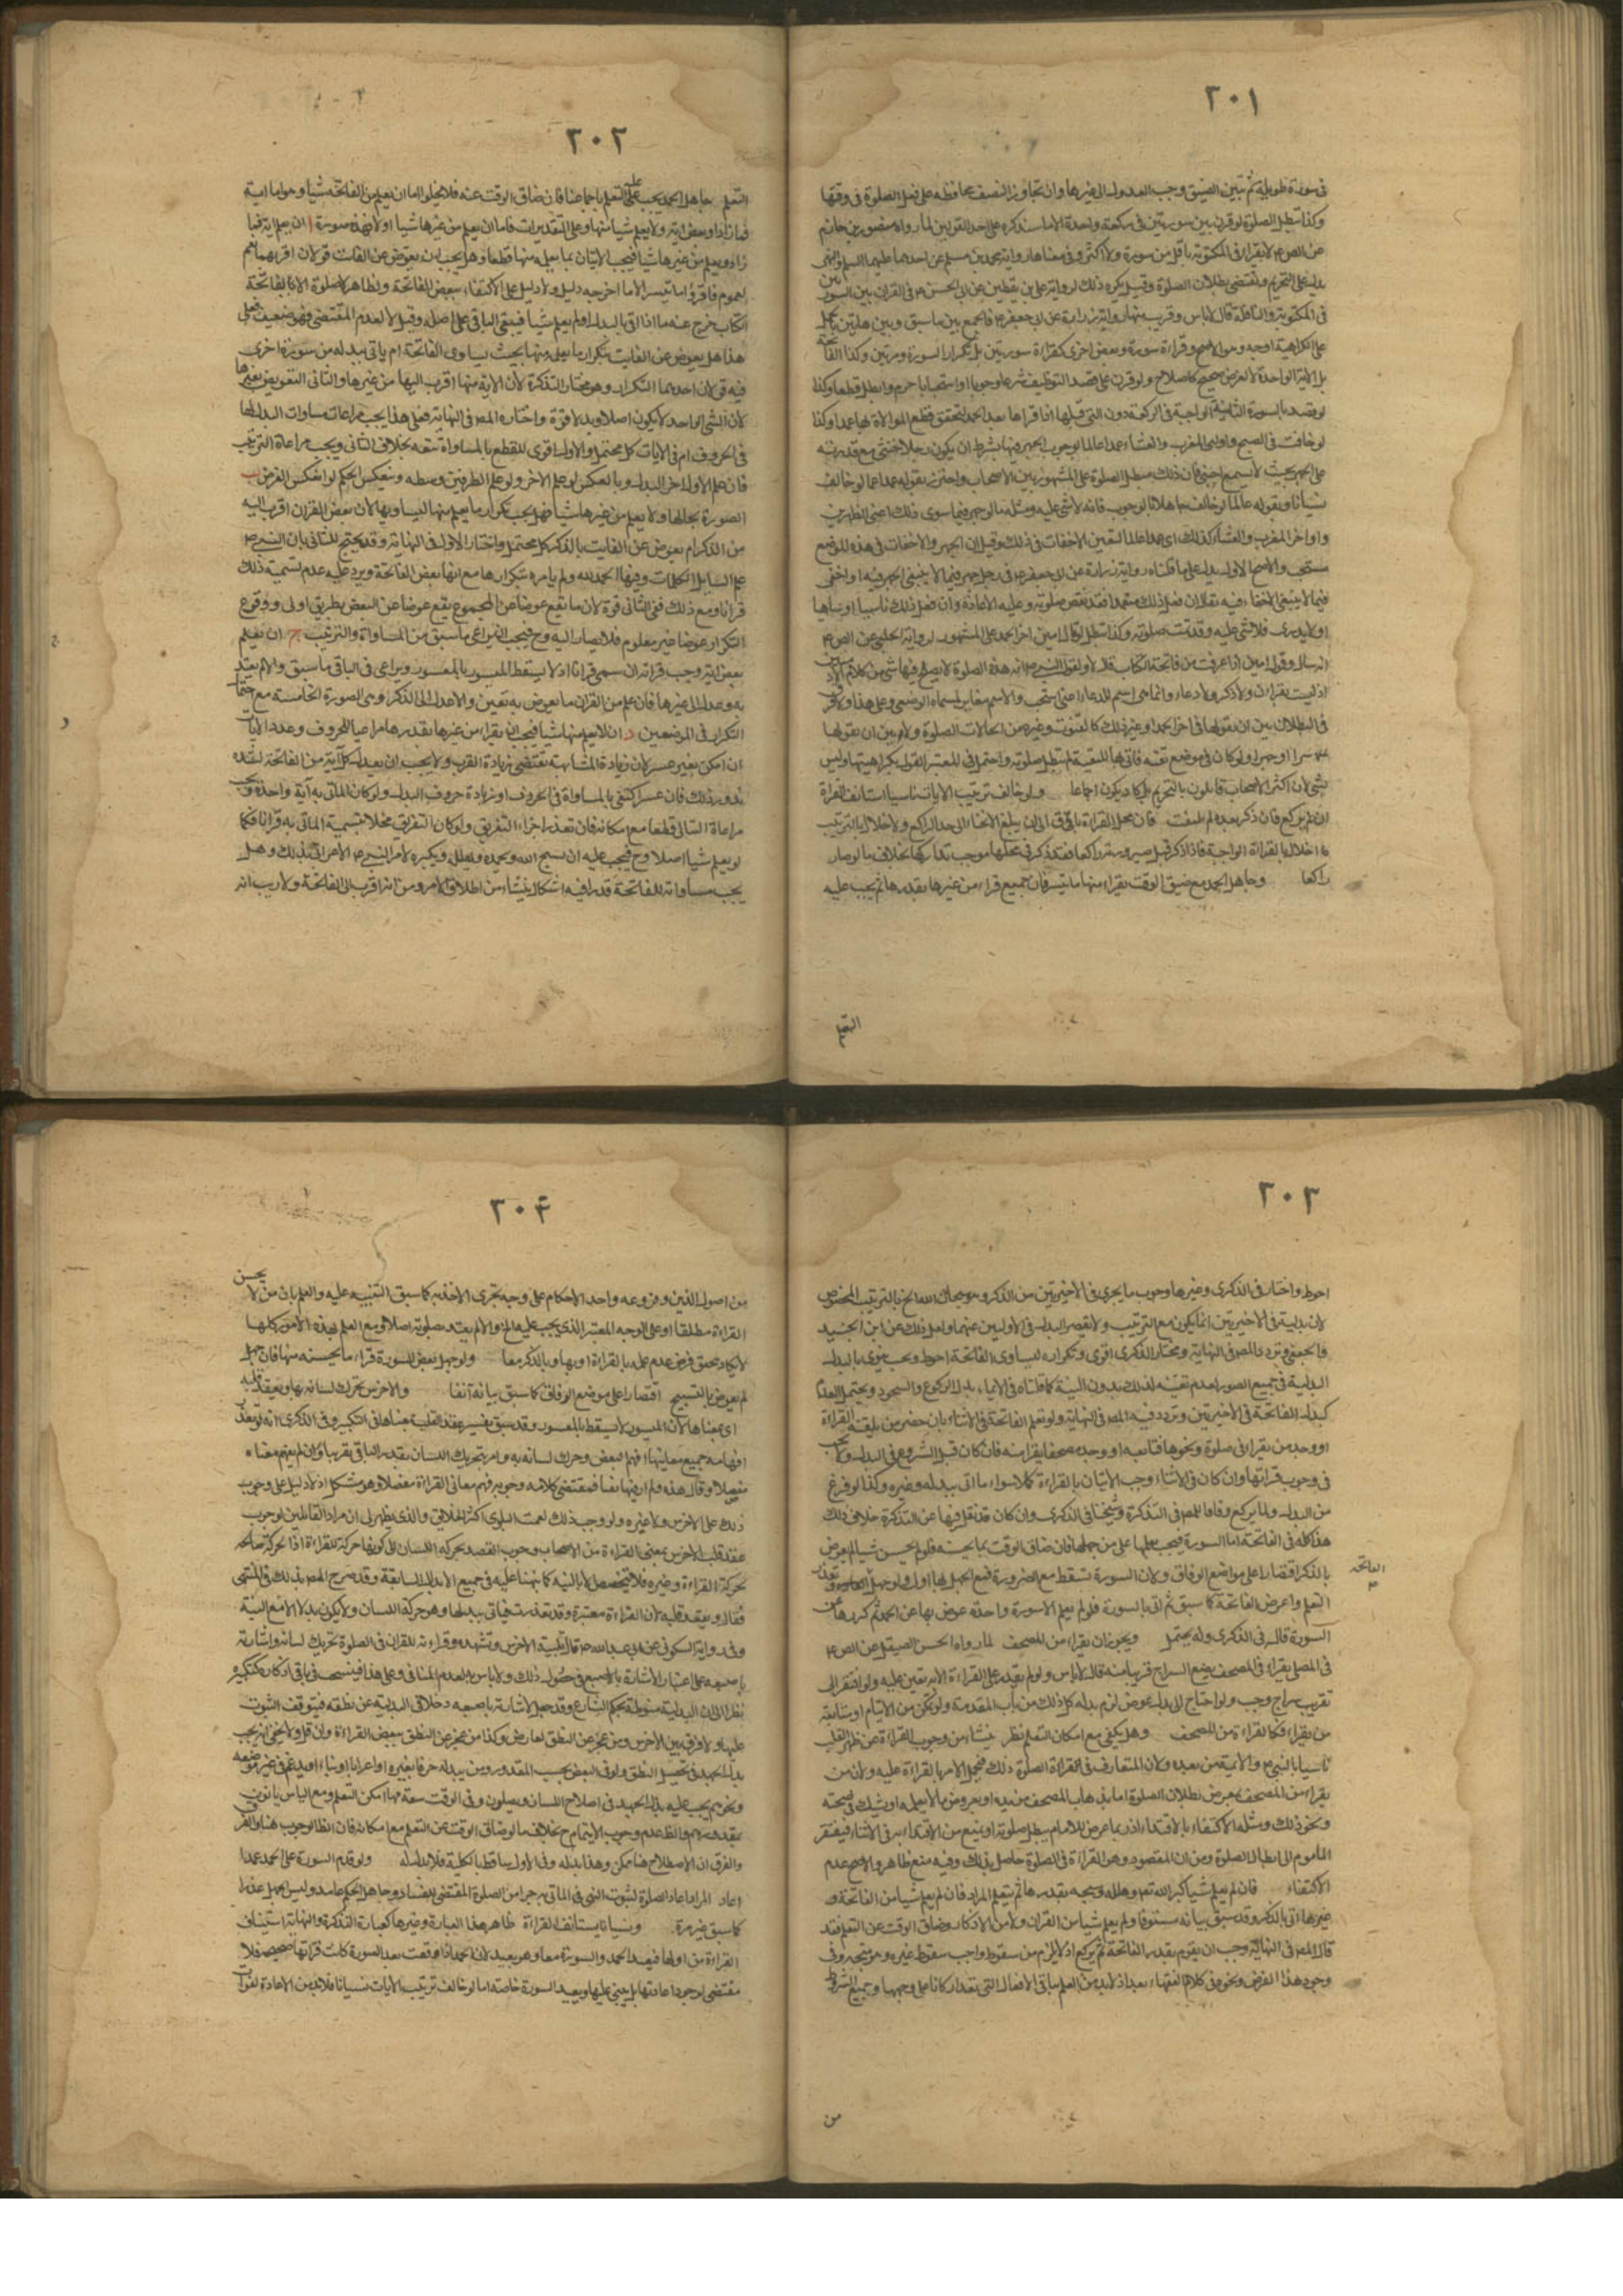 ٢٠١
في سورة طويلة ثم تبين الضيق وجب العدول الى غيرها وان تجاوز النصف محافظة على فعل الصلوة في وقتها
وكذا تبطل الصلوة لو قرن بين سورتين في ركعة واحدة لما سنذكره على احد القولين لما رواه منصور بن حازم
عن الص ع لا تقرأ في المكتوبة باقل من سورة ولا اكثر وفي معناها رواية محمد بن مسلم عن احدهما عليهما السلم والنهى
يدل على التحريم ويقتضى بطلان الصلوة وقيل يكره ذلك لرواية على بن يقطين عن ابى الحسن ع في القران بين السورتين
في المكتوبة والنافلة قال لا باس وقريب منها رواية زرارة عن ابى جعفر ع فالجمع بين ما سبق وبين هاتين بالحمل
على الكراهية اوجه وهو الاصح وقراءة سورة وبعض اخرى كقراءة سورتين بل تكرار السورة مرتين وكذا الفاتحة
بل الاية الواحدة لا لغرض صحيح كاصلاح ولو قرن على قصد التوظيف شرعا وجوبا او استحبابا حرم وابطل قطعا وكذا
لو قصد بالسورة الثانية الواجبة في الركعة دون التى قبلها اذا قراها بعد الحمد لتحقق قطع الموالاة بها عمدا وكذا
لو خافت في الصبح واوليى المغرب والعشاء عمدا عالما بوجوب الجهر فيها بشرط ان يكون رجلا او خنثى مع قدرته
على الجهر بحيث لا يسمع اجنبى فان ذلك مبطل للصلوة على المشهور بين الاصحاب واحترز بقوله عمدا عما لو خالف
نسيانا وبقوله عالما لو خالف جاهلا بالوجوب فانه لا شى عليه ومثله ما لو جهر فيما سوى ذلك اعنى الظهرين
واواخر المغرب والعشاء كذلك اى عمدا عالما لتعين الاخفات في ذلك وقيل ان الجهر والاخفات في هذه المواضع
مستحب والاصح الاول يدل على ما قلناه رواية زرارة عن ابى جعفر ع في رجل جهر فيما لا ينبغى الجهر فيه او اخفى
فيما لا ينبغى الاخفاء فيه فقال ان فعل ذلك متعمدا فقد نقض صلوته وعليه الاعادة وان فعل ذلك ناسيا او ساهيا
او لا يدرى فلا شى عليه وقد تمت صلوته وكذا تبطل لو قال امين اخر الحمد على المشهور لرواية الحلبى عن الص ع
انه سال اقول امين اذا فرغت من فاتحة الكتاب قال لا ولقول النبى ص انه هذه الصلوة لا يصلح فيها شى من كلام الآدميين
اذ ليست بقران ولا ذكر ولا دعاء وانما هى اسم للدعاء اعنى استجب والاسم مغاير لمسماه الوضعى وعلى هذا ولا فرق
في البطلان بين ان يقولها في اخر الحمد او غير ذلك كالقنوت وغيره من الحالات الصلوة ولا بين ان يقولها
سرا او جهرا ولو كان في موضع تقية فاتى بها للتقية لم تبطل صلوته واحتمل في المعتبر القول بكراهيتها وليس
بشى لان اكثر الاصحاب قائلون بالتحريم بل كاد يكون اجماعا ولو خالف ترتيب الايات ناسيا استانف القراءة
ان لم يركع فان ذكر بعده لم يلتفت فان محل القراءة باق الى ان يبلغ الانحناء الى حد الراكع ولاخلال بالترتيب
اخلال بالقراءة الواجبة فاذا ذكر قبل صيرورته راكعا فقد ذكر في محلها فوجب تداركها بخلاف ما لو صار
راكعا وجاهل الحمد مع ضيق الوقت يقراء منها ما تيسر فان جهل الجميع قراء من غيرها بقدرها ثم يجب عليه
التعلم
٢٠٢
التعلم جاهل الحمد يجب عليه التعلم باجماعنا فان ضاق الوقت عنه فلا يخلو اما ان يعلم من الفاتحة شيا وهو اما اية
فما زاد او بعض اية ولا يعلم شيا منها وعلى التقديرات فاما ان يعلم من غيرها شيا او لا فهذه صورة ا ان يعلم اية فما
زاد ويعلم من غيرها شيا فيجب الاتيان بما يعلمه منها قطعا وهل يجب ان يعوض عن الفائت قولان اقربهما نعم
لعموم فاقرؤا ما تيسر الا ما اخرجه دليل ولا دليل على الاكتفاء ببعض الفاتحة ولظاهر لا صلوة الا بفاتحة
الكتاب خرج عنه ما اذا اتى بالبدل اولم يعلم شيا فيبقى الباقي على اصله وقيل لا لعدم المقتضى فهو ضعيف فعلى
هذا هل يعوض عن الفايت بتكرار ما يعلم منها بحيث يساوى الفاتحة ام ياتى ببدله من سورة اخرى
فيه قولان احدهما التكرار وهو مختار التذكرة لان الاية منها اقرب اليها من غيرها والثانى التعويض بغيرها
لان الشى الواحد لا يكون اصلا وبدلا قوة واختاره المص في النهاية فعلى هذا يجب مراعاة مساوات البدل لها
في الحروف ام في الايات كل محتمل والاول اقوى للقطع بالمساواة معه بخلاف الثانى ويجب مراعاة الترتيب
فان علم الاول اخر البدل وبالعكس لو علم الاخر ولو علم الطرفين وسطه وينعكس الحكم لو انعكس الفرض ب
الصورة بحالها ولا يعلم من غيرها شيا فهل يجب تكرار ما يعلم منها ليساويها لان بعض القران اقرب اليه
من الذكر ام يعوض عن الفايت بالذكر كل محتمل واختار الاول في النهاية وقد يحتج للثانى بان النبى ص
علم السايل الكلمات وفيها الحمد لله ولم يامره بتكرارها مع انها بعض الفاتحة ويرد عليه عدم تسمية ذلك
قرانا ومع ذلك ففى الثانى قوة لان ما يقع عوضا عن المجموع يقع عوضا عن البعض بطريق اولى ووقوع
التكرار عوضا غير معلوم فلا يصار اليه وح فيجب ان يراعى ما سبق من المساواة والترتيب ج ان يعلم
بعض اية وجب قراته ان سمى قرانا اذ لا يسقط الميسور بالمعسور ويراعى في الباقى ما سبق والا لم يعتد
به وعدل الى غيرها فان علم من القران ما يعوض به تعين والا عدل الى الذكر وهى الصورة الخامسة مع
التكرار في الموضعين د ان لا يعلم منها شيا فيجب ان يقراء من غيرها بقدرها مراعيا للحروف وعدد الايات
ان امكن بغير عسر لان زيادة المشابهة تقتضى زيادة القرب ولا يجب ان يعدل كل آية من الفاتحة
بدون ذلك فان عسر اكتفى بالمساواة في الحروف او زيادة حروف البدل ولو كان الماتى به آية واحدة ويجب
مراعاة التتالى قطعا مع امكانه فان تعذر اجزاء التفريق ولو كان التفريق مخلا بتسمية الماتى به قرانا فكما
لو يعلم شيا اصلا وح فيجب عليه ان يسبح الله ويحمده ويهلل ويكبره لامر النبى ص الاعرابى بذلك وهل
يجب مساواته للفاتحة قدرا فيه اشكال ينشاء من اطلاق الامر ومن انه اقرب الى الفاتحة ولا ريب انه
٢٠٣
احوط واختار في الذكرى وغيرها وجوب ما يجرى في الاخيرتين من الذكر وهو سبحان الله الخ بالترتيب المخصوص
لان بدليته في الاخيرتين انما يكون مع الترتيب ولا يقصر البدل في الاوليين عنهما وامل ذلك عن ابن الجنيد
والجعفى وتردد المص في النهاية ومختار الذكرى اقوى وتكراره ليساوى الفاتحة احوط ويجب نوى بالبدل
البدلية في جميع الصور لعدم تعينه لذلك بدون النية كما قلناه في الايماء بدل الركوع والسجود ويحتمل العدم
كبدل الفاتحة في الاخيرتين وتردد فيه المص في النهاية ولو تعلم الفاتحة في الاثناء بان حضر من يلقنه القراءة
او وجد من يقرا في صلوة ونحوها فتابعه او وجد مصحفا يقرا منه فان كان قبل الشروع في البدل
في وجوب قراتها وان كان في الاثناء وجب الاتيان بالقراءة كملا سواء ما اتى ببدله وغيره وكذا لو فرغ
من البدل ولما يركع وفاقا للمص في التذكرة وشيخنا في الذكرى وان كان قد نقل فيها عن التذكرة خلاف ذلك
هذا كله في الفاتحة اما السورة فيجب تعلمها على من جهلها فان ضاق الوقت بما يحسنه فلو لم يحسن شيا لم يعوض
بالذكر اقتصارا على مواضع الوفاق ولان السورة تسقط مع الضرورة فمع الجهل بها اولى ولو جهل وتعذر
الفاتحة
التعلم واعرض الفاتحة كما سبق ثم اتى بالسورة فلو لم يعلم الا سورة واحدة عوض بها عن الحمد ثم كررها عن
السورة قاله في الذكرى وله يحتمل ويجوز ان يقراء من المصحف لما رواه الحسن الصيقل عن الص ع
في المصلى يقراء في المصحف يضع السراج قريبا منه قال لا باس ولو لم يقدر على القراءة الا به تعين عليه ولو افتقر الى
تقريب سراج وجب ولو احتاج الى بدل عوض لزم بدله كل ذلك من باب المقدمة ولو تمكن من الايتمام او متابعة
من يقراء فكالقراءة من المصحف وهل يكفى مع امكان التعلم نظر ينشاء من وجوب القراءة عن ظهر القلب
تاسيا بالنبى ص والائمة من بعده ولان المتعارف في القراءة الصلوة ذلك فيحمل الامر بالقراءة عليه ولان من
يقراء من المصحف معرض بطلان الصلوة اما بذهاب المصحف من يده او بعروض ما لا يعلمه او يشك في صحته
ونحو ذلك ومثله الاكتفاء بالاقتداء اذ ربما عرض للامام مبطل صلوته او يمنع من الاقتداء به في الاثناء فيفتقر
الماموم الى ابطال الصلوة ومن ان المقصود وهو القراءة في الصلوة حاصل بذلك وفيه منع ظاهر والاصح عدم
الاكتفاء فان لم يعلم شيا كبر الله تعم وهلله وسبحه بقدرها ثم يتعلم المراد فان لم يعلم شيا من الفاتحة و
غيرها اتى بالذكر وقد سبق بيانه مستوفا ولو لم يعلم شيا من القران ولا من الاذكار وضاق الوقت عن التعلم فقد
قال المص في النهاية وجب ان يقوم بقدر الفاتحة ثم يركع اذ لا يلزم من سقوط واجب سقوط غيره وهو متجه وفى
وجود هذا الفرض ونحوه في كلام الفقهاء بعد اذ لا بد من العلم بباقى الافعال التى تعد اركانا على وجهها وجميع الشرائط
من
٢٠٤
من اصول الدين وفروعه واحد الاحكام على وجه يجزى الاخذ به كما سبق التنبيه عليه والعلم بان من لا يحسن
القراءة مطلقا او على الوجه المعتبر الذى يجب عليه الخ والا لم يعتد بصلوته اصلا ومع العلم بهذه الامور كلها
لا يكاد يتحقق فرض عدم علمه بالقراءة او بها وبالذكر معا ولو جهل بعض السورة قراء ما يحسنه منها فان جهل
لم يعوض بالتسبيح اقتصارا على موضع الوفاق كما سبق بيانه آنفا والاخرس يحرك لسانه بها ويعقد قلبه
اى بمعناها لان الميسور لا يسقط بالمعسور وقد سبق تفسير عقد القلب بمعناها في التكبير وفى الذكرى انه لو تعذر
افهامه جميع معانيها افهم البعض وحرك لسانه به وامر بتحريك اللسان بقدر الباقى تقريبا وان لم يفهم معناه
مفصلا وقال هذه لم ار فيها نصا فمقتضى كلامه وجوب فهم معانى القراءة مفصلا وهو مشكل اذ لا دليل على وجوب
ذلك على الاخرس ولا غيره ولو وجب ذلك لعمت البلوى اكثر الخلايق والذى يظهر لى ان مراد القائلين بوجوب
عقد قلب الاخرس بمعنى القراءة من الاصحاب وجوب القصد بحركة اللسان الى كونها حركة للقراءة اذا لحركة صالحة
لحركة القراءة وغيره فلا يتخصص الا بالنية كما نبهنا عليه في جميع الابدال السابقة وقد صرح المص بذلك في المنتهى
فقال ويعقد قلبه لان القراءة معتبرة وقد تعذرت فياتى ببدلها وهو حركة اللسان ولا يكون بدلا الا مع النية
وفى رواية السكونى عن ابى عبد الله ع قال تلبية الاخرس وتشهده وقراءته للقران في الصلوة تحريك لسانه واشارته
باصبعه على اعتبار الاشارة بالاصبع في حصول ذلك ولا باس به لعدم المنافى وعلى هذا فينسحب في باقى اذكاره كتكبيره
نظرا الى ان البدلية منوطة بحكم الشارع وقد جعل الاشارة باصبعه دخلا في البدلية عن نطقه فيتوقف الثبوت
عليها ولا فرق بين الاخرس ومن عجز عن النطق لعارض وكذا من عجز عن النطق ببعض القراءة وان قل ولا يخفى انه يجب
بذل الجهد في تحصيل النطق ولو في البعض بحسب المقدور ومن يبدله حرفا بغيره او اعرابا او بناء او يدغم في غير موضعه
ونحوهم يجب عليه بذل الجهد في اصلاح اللسان ويصلون وفى الوقت سعة مهما امكن التعلم ومع الياس ياتون
بقدورهم والظ عدم وجوب الايتمام ح بخلاف ما لو ضاق الوقت عن التعلم مع امكانه فان الظ الوجوب هنا والفرق
والفرق ان الاصلاح هنا ممكن وهذا بدله وفى الاول ساقط بالكلية فلا بدل له ولو قدم السورة على الحمد عمدا
اعاد المراد اعاد الصلوة لثبوت النهى في الماتى به جزا من الصلوة المقتضى للفساد وجاهل الحكم عامد وليس الجهل عذرا
كما سبق غير مرة ونسيانا يستانف القراءة ظاهر هذا العبارة وغيرها كعبارة التذكرة والنهاية استيناف
القراءة من اولها فيعيد الحمد والسورة معا وهو بعيد لان الحمد اذا وقعت بعد السورة كانت قراتها صحيحة فلا
مقتضى لوجوب اعادتها بل يبنى عليها ويعيد السورة خاصة اما لو خالف ترتيب الايات نسيانا فلا بد من الاعادة لفوات